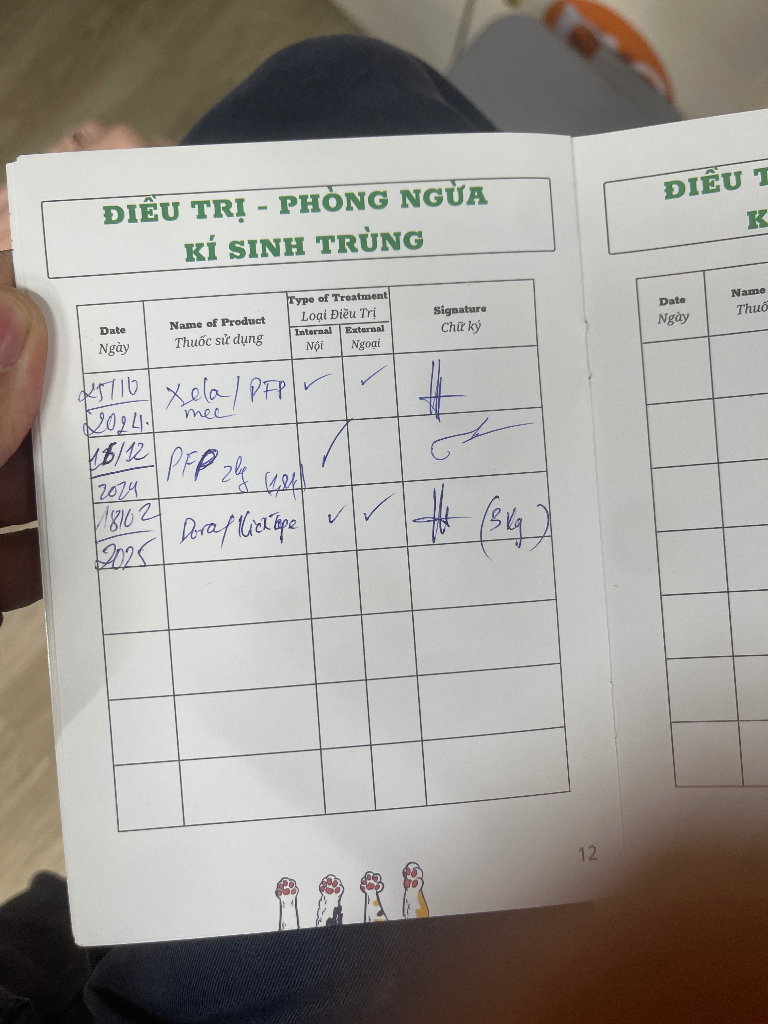 ĐIỀU TRỊ - PHÒNG NGỪA
KÍ SINH TRÙNG
Date
Ngày
Name of Product
Thuốc sử dụng
Type of Treatment
Loại Điều Trị
Internal
Nội
External
Ngoại
Signature
Chữ ký
25/10
2024.
Xela / PFP
mec
✓ ✓
16/12
2024
PFP 2kg
✓
18/02
2025
✓ ✓
(3kg)
12
ĐIỀU T
K
Date
Ngày
Name
Thuố